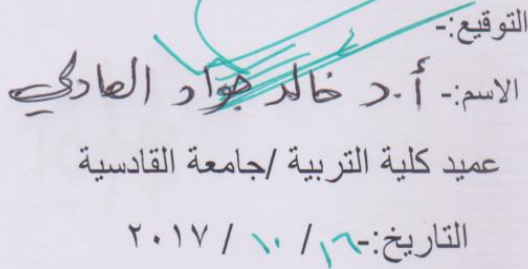 التوقيع:-
الاسم:- أ.د خالد جواد العادلي
عميد كلية التربية /جامعة القادسية
التاريخ:- ١٦ / ١٠ / ٢٠١٧